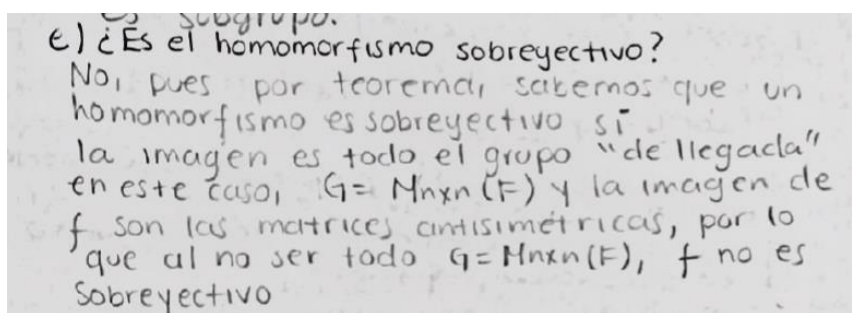 es subgrupo.
e) ¿Es el homomorfismo sobreyectivo?
No, pues por teorema, sabemos que un
homomorfismo es sobreyectivo si
la imagen es todo el grupo "de llegada"
en este caso, G= Mnxn (F) y la imagen de
f son las matrices antisimétricas, por lo
que al no ser todo G=Mnxn(F), f no es
Sobreyectivo